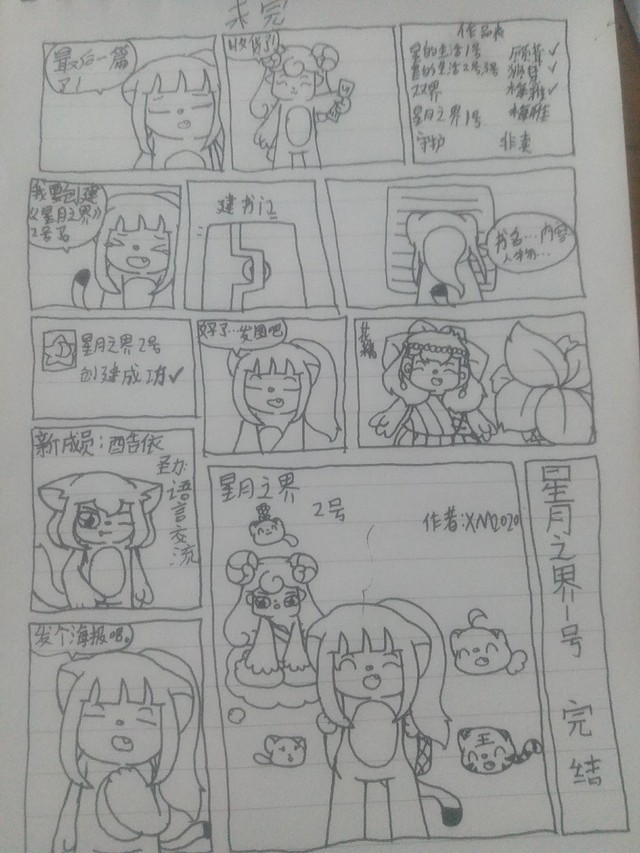 未完
最后一篇
了!
收货了!
作品表
星的生活1号
星的生活2号,3号
双界
梅雅✓
星月之界1号
梅雅
守护
非卖
我要创建
《星月之界》
2号了
建书江
书名…内容
人物…
星月之界2号
创建成功✓
好了…发图吧
花糖
新成员:酷告依
圣力:语言交流
星月之界
2号
作者:XM2020
发个海报吧。
王
星月之界1号 完结